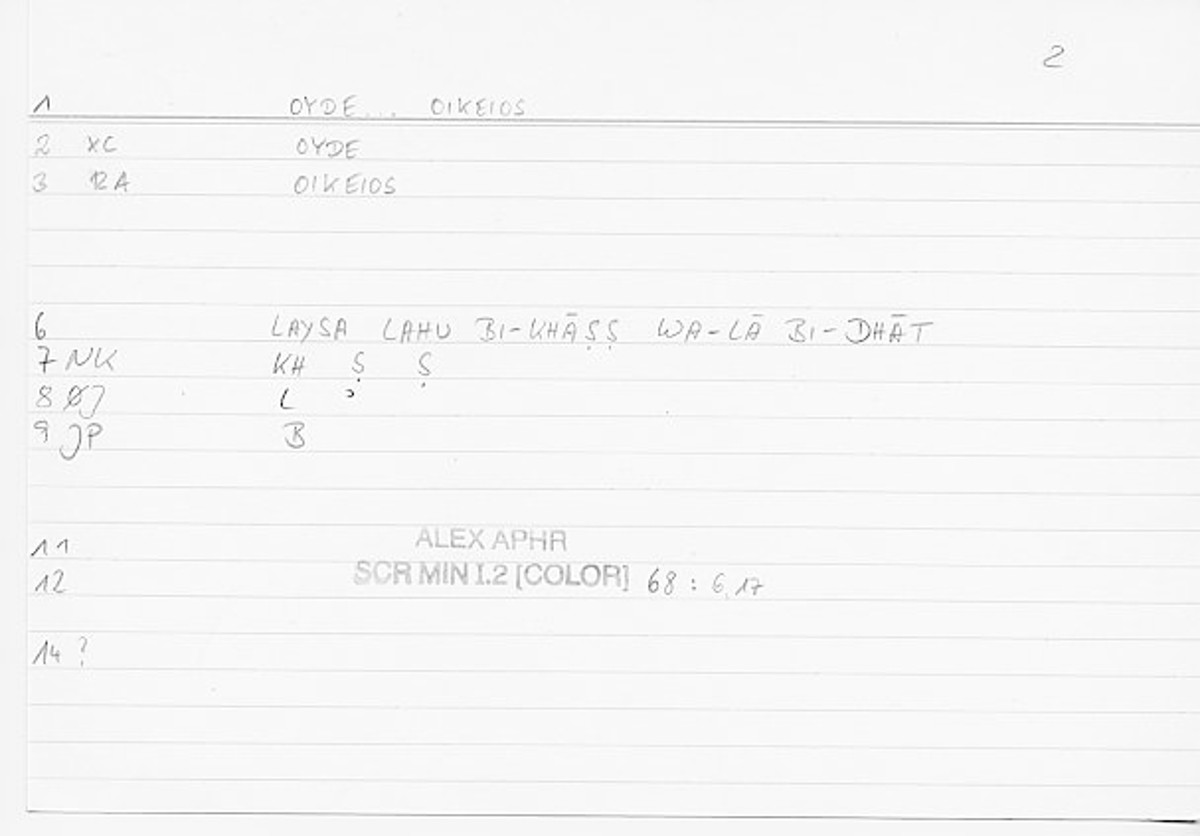 2
1 OYDE... OIKEIOS
2 XC OYDE
3 RA OIKEIOS
6 LAYSA LAHU BI-KHĀṢṢ WA-LĀ BI-DHĀT
7 NK KH Ṣ Ṣ
8 ØJ L ʾ
9 JP B
11 ALEX APHR
12 SCR MIN I.2 [COLOR] 68 : 6,17
14 ?